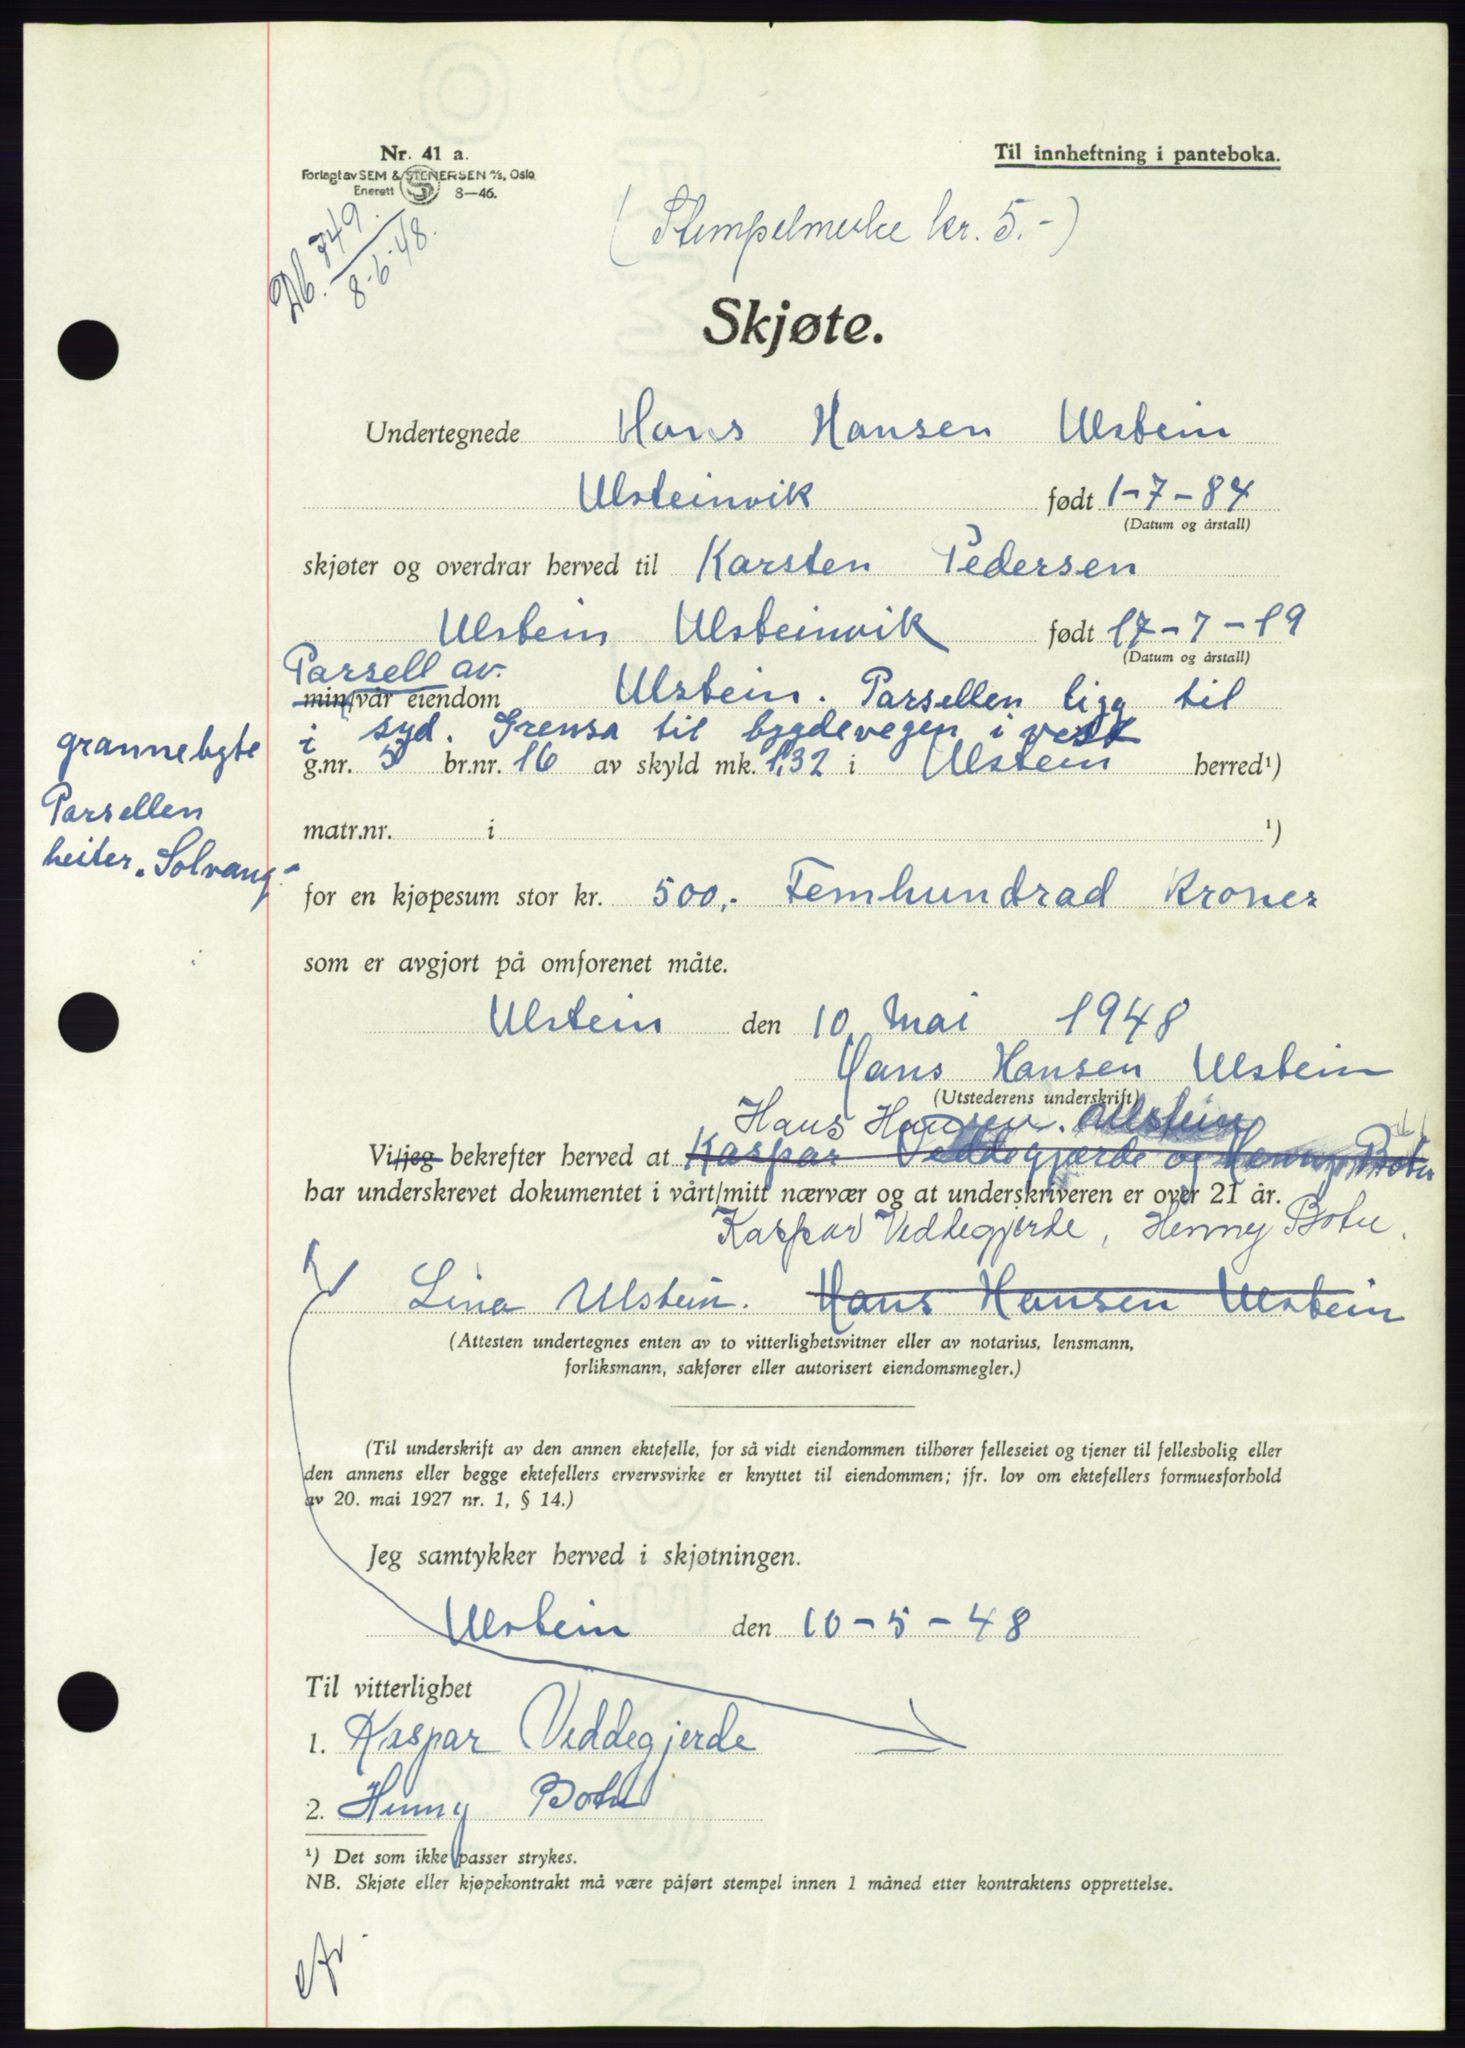 Nr. 41 a.
Forlagt av SEM & STENERSEN A/S, Oslo
Enerett 8—46.
Til innheftning i panteboka.
(Stempelmerke kr. 5.-)
Db. 749
8-6-48.
Skjøte.
Undertegnede Hans Hansen Ulstein
Ulsteinvik født 1-7-84
(Datum og årstall)
skjøter og overdrar herved til Karsten Pedersen
Ulstein Ulsteinvik født 17-7-19
(Datum og årstall)
Parsell av
min/vår eiendom Ulstein. Parsellen ligg til
i syd. Grensa til bygdevegen i vest
grannebyte
g.nr. 5 br.nr. 16 av skyld mk. 1,32 i Ulstein herred¹)
Parsellen
heiter "Solvang"
matr.nr. i ¹)
for en kjøpesum stor kr. 500,- Femhundrad Kroner
som er avgjort på omforenet måte.
Ulstein den 10 Mai 1948
Hans Hansen Ulstein
(Utstederens underskrift)
Hans Hansen. Ulstein
Vi/jeg bekrefter herved at Kaspar Veddegjærde og Henny Botn
har underskrevet dokumentet i vårt/mitt nærvær og at underskriveren er over 21 år.
Kaspar Veddegjerde, Henny Botn.
Lina Ulstein. Hans Hansen Ulstein
(Attesten undertegnes enten av to vitterlighetsvitner eller av notarius, lensmann,
forliksmann, sakfører eller autorisert eiendomsmegler.)
(Til underskrift av den annen ektefelle, for så vidt eiendommen tilhører felleseiet og tjener til fellesbolig eller
den annens eller begge ektefellers ervervsvirke er knyttet til eiendommen; jfr. lov om ektefellers formuesforhold
av 20. mai 1927 nr. 1, § 14.)
Jeg samtykker herved i skjøtningen.
Ulstein den 10-5-48
Til vitterlighet
1. Kaspar Veddegjerde
2. Henny Botn
¹) Det som ikke passer strykes.
NB. Skjøte eller kjøpekontrakt må være påført stempel innen 1 måned etter kontraktens opprettelse.